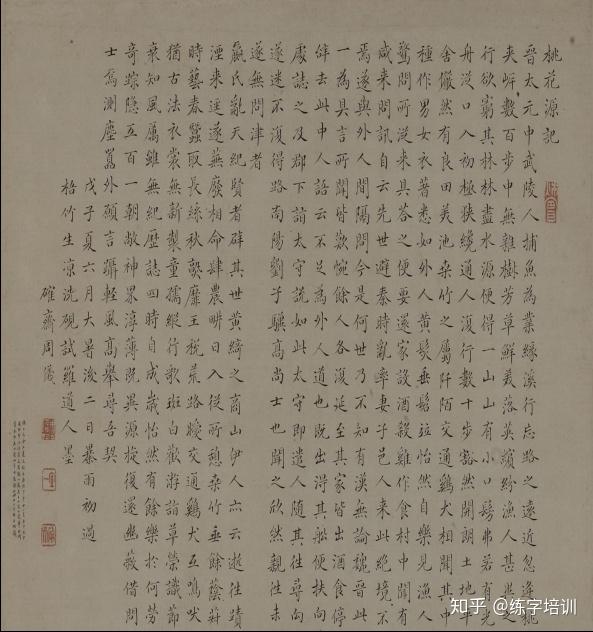 桃花源記
晉太元中武陵人捕魚為業緣溪行忘路之遠近忽逢桃
夾岍數百步中無雜樹芳草鮮美落英繽紛漁人甚異之
行欲窮其林林盡水源便得一山山有小口髣弗若有光
舟從口入初極狹纔通人復行數十步豁然開朗土地平
舍儼然有良田美池桑竹之屬阡陌交通雞犬相聞其中
種作男女衣著悉如外人黃髮垂髫竝怡然自樂見漁人
驚問所從來具答之便要還家設酒殺雞作食村中聞有
咸來問訊自云先世避秦時亂率妻子邑人來此絕境不
焉遂與外人間隔問今是何世乃不知有漢無論魏晉此
一為具言所聞皆歎惋餘人各復延至其家皆出酒食停
辭去此中人語云不足為外人道也既出得其船便扶向
處誌之及郡下詣太守說如此太守即遣人隨其往尋向
遂迷不復得路南陽劉子驥高尚士也聞之欣然親往未
遂無問津者
嬴氏亂天紀賢者辟其世黃綺之商山伊人亦云逝往蹟
湮來逕遂蕪廢相命肆農畊日入從所憩桑竹垂餘蔭菽
時藝春蠶取長絲秋熟靡王稅荒路曖交通雞犬互鳴吠
猶古法衣裳無新製童孺縱行歌班白歡游詣草榮識節
衰知風厲雖無紀歷誌四時自成歲怡然有餘樂於何勞
奇踪隐五百一朝敞神界淳薄既異源旋復還幽蔽借問
士焉測塵囂外願言躡輕風高舉尋吾契
戊子夏六月大暑後二日暴雨初過
梧竹生涼洗硯試雖道人墨
確齋周儀
知乎 @练字培训